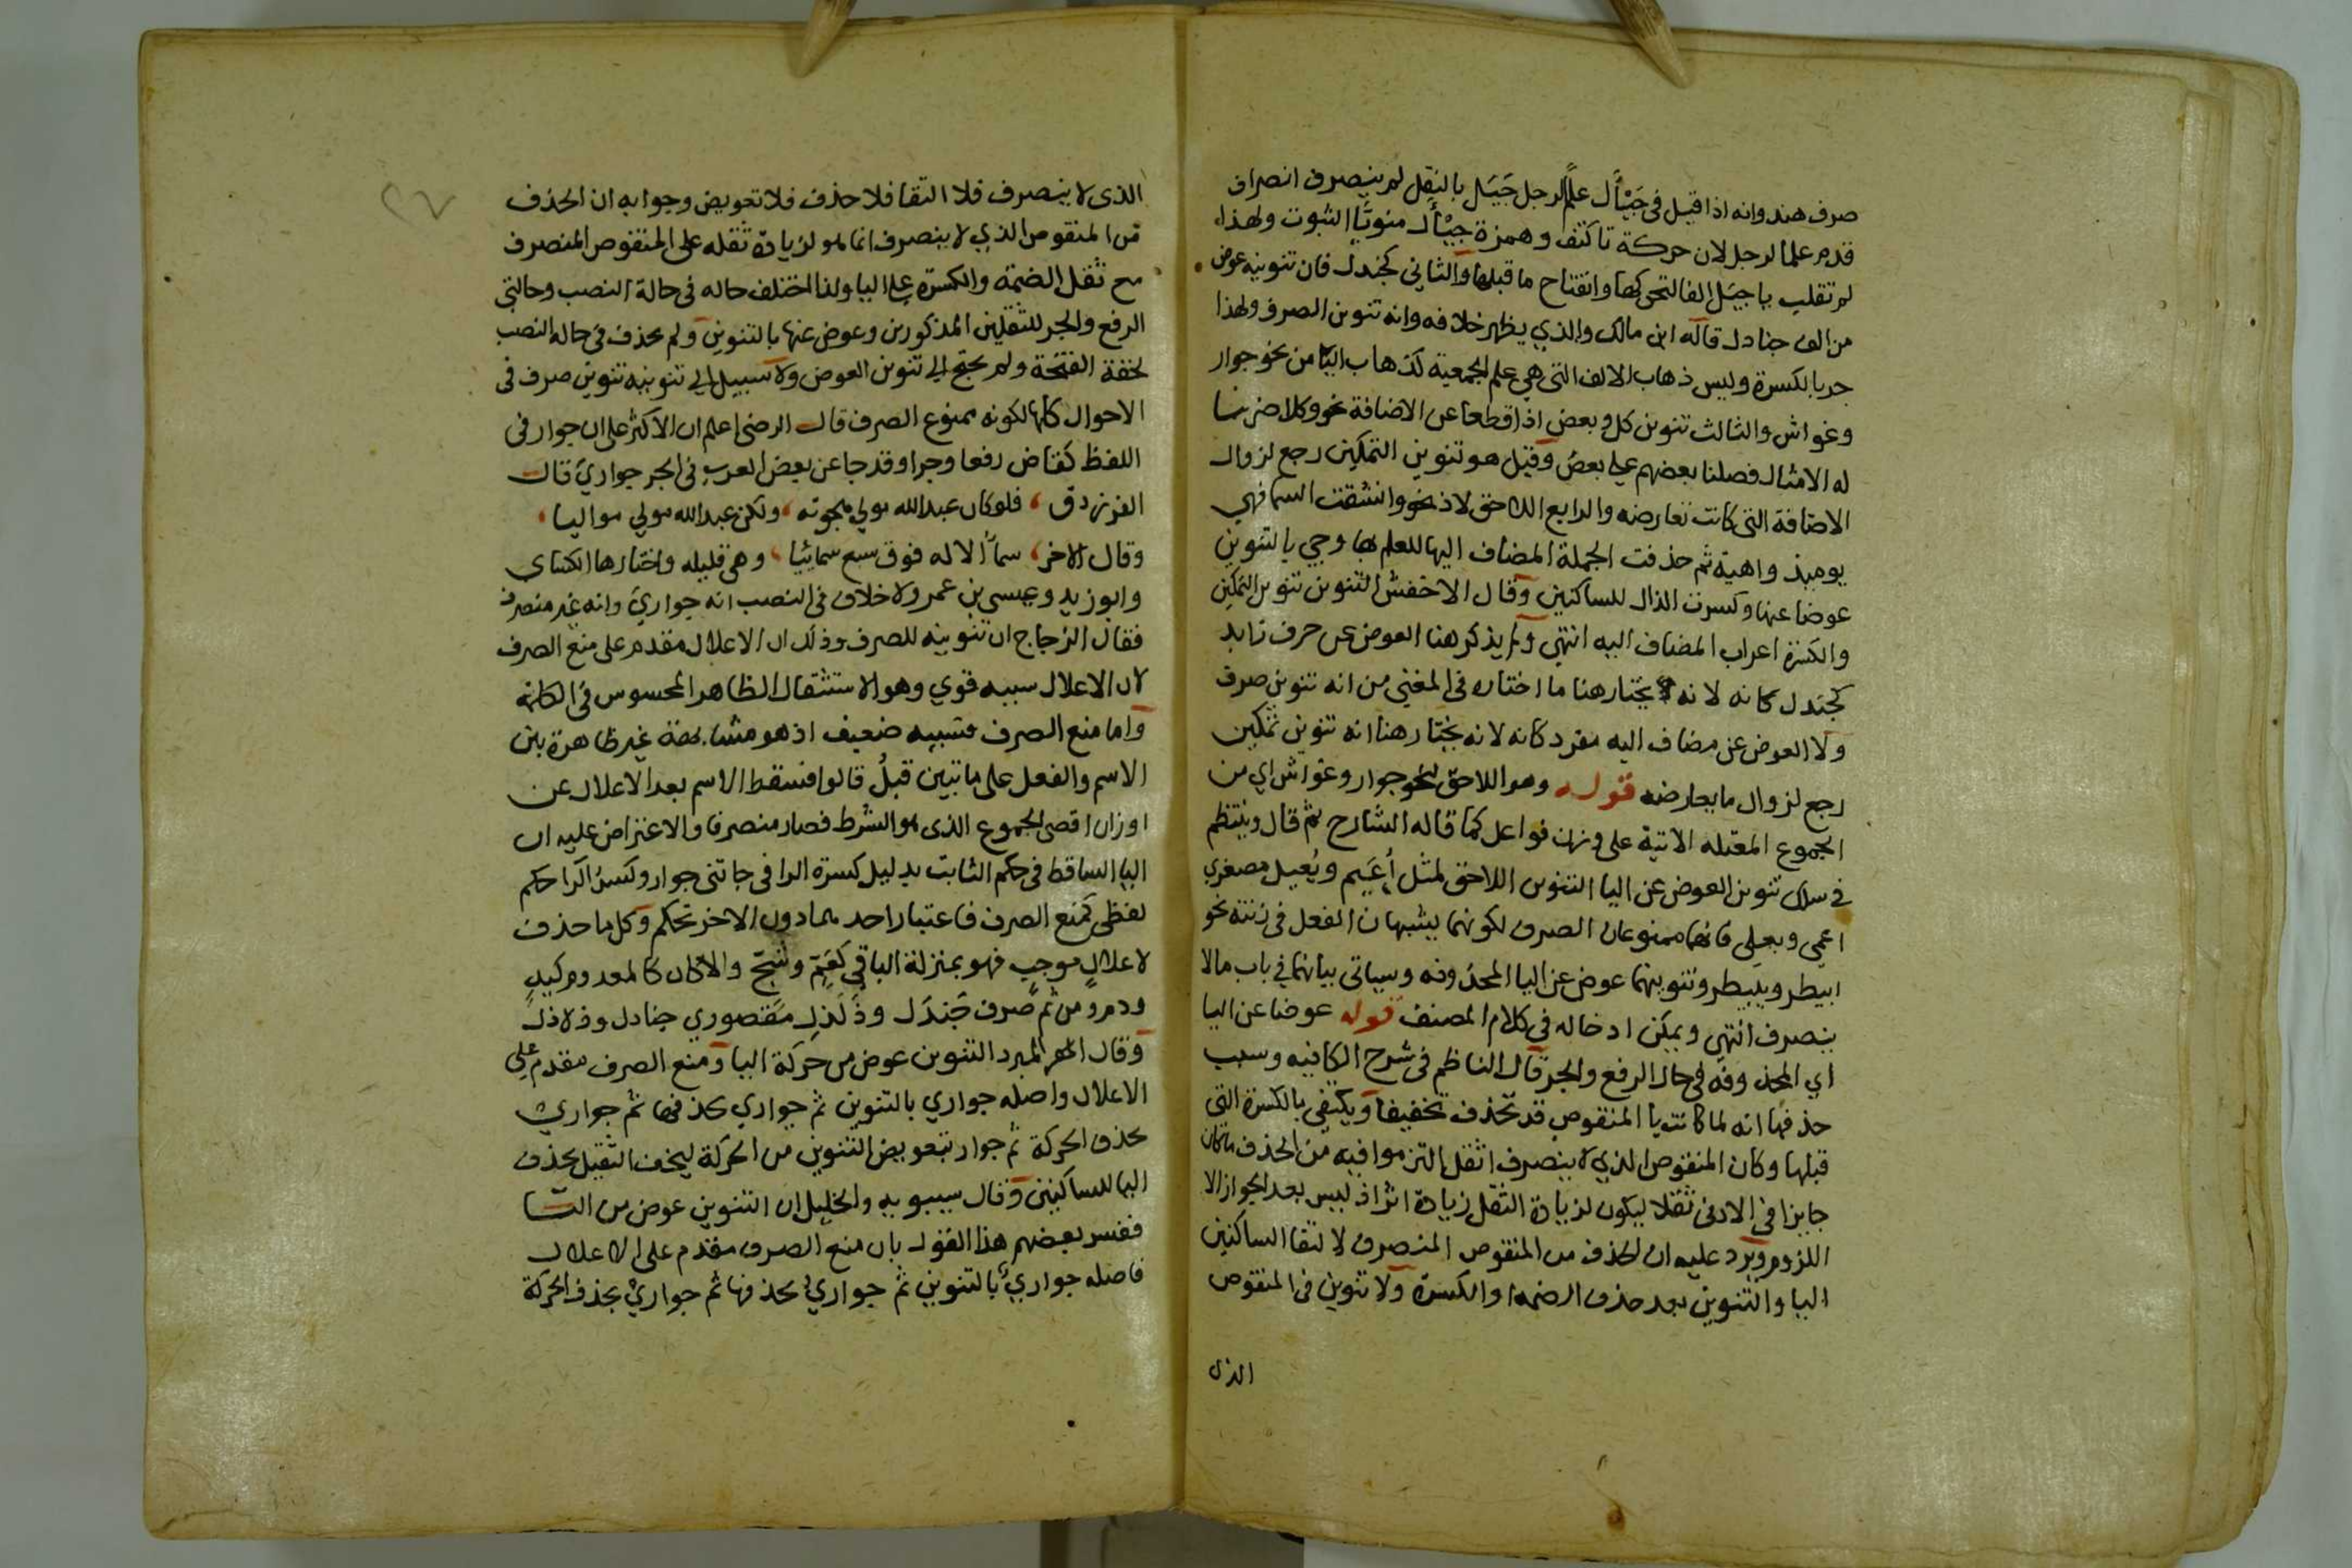 صرف هند وانه اذا قيل في جَيْأَل علمًا لرجل جَيَل بالنقل لم ينصرف انصراف
قدم علما لرجل لان حركة تا كتف وهمزة جيْأَل منويتا الثبوت ولهذا
لم تقلب يا جيَل الفا لتحركها وانفتاح ما قبلها والثاني كجندل فان تنوينه عوض
من الف جنادل قاله ابن مالك والذي يظهر خلافه وانه تنوين الصرف ولهذا
جر بالكسرة وليس ذهاب الالف التي هي علم الجمعية كذهاب اليا من نحو جوار
وغواش والثالث تنوين كل وبعض اذا قطعا عن الاضافة نحو وكلا ضربنا
له الامثال فضلنا بعضهم علي بعض وقيل هو تنوين التمكين رجع لزوال
الاضافة التي كانت تعارضه والرابع اللاحق لاذ نحو وانشقت السما فهي
يوميذ واهية ثم حذفت الجملة المضاف اليها للعلم بها وجي بالتنوين
عوضا عنها وكسرت الذال للساكنين وقال الاخفش التنوين تنوين التمكين
والكسرة اعراب المضاف اليه انتهي ولم يذكر هنا العوض عن حرف زايد
كجندل كانه لانه يختار هنا ما اختاره في المغني من انه تنوين صرف
ولا العوض عن مضاف اليه مفرد كانه لانه يختار هنا انه تنوين تمكين
رجع لزوال ما يعارضه قوله وهو اللاحق لنحو جوار وغواش اي من
الجموع المعتله الاتية على وزن فواعل كما قاله الشارح ثم قال وينتظم
في سلك تنوين العوض عن اليا التنوين اللاحق لمثل أُعَيم ويُعيل مصغري
اعمي ويعلي فانهما ممنوعان الصرف لكونهما يشبهان الفعل في زنته نحو
ابيطر ويبيطر وتنوينهما عوض عن اليا المحذوفه وسياتي بيانهما في باب مالا
ينصرف انتهي ويمكن ادخاله في كلام المصنف قوله عوضا عن اليا
اي المحذوفه في حال الرفع والجر قال الناظم في شرح الكافيه وسبب
حذفها انه لما كانت يا المنقوص قد تحذف تخفيفا ويكتفي بالكسرة التي
قبلها وكان المنقوص الذي لا ينصرف اثقل التزموا فيه من الحذف ما كان
جايزا في الادنى ثقلا ليكون لزيادة الثقل زيادة اثر اذ ليس بعد الجواز الا
اللزوم ويرد عليه ان الحذف من المنقوص المنصرف لالتقا الساكنين
اليا والتنوين بعد حذف الضمة والكسرة ولا تنوين في المنقوص
الذي
٢٧
الذي لا ينصرف فلا التقا فلا حذف فلا تعويض وجوابه ان الحذف
من المنقوص الذي لا ينصرف انما هو لزيادة ثقله على المنقوص المنصرف
مع ثقل الضمة والكسرة علي اليا ولذا اختلف حاله في حالة النصب وحالتي
الرفع والجر للثقلين المذكورين وعوض عنها بالتنوين ولم يحذف في حاله النصب
لخفة الفتحة ولم يحتج الي تنوين العوض ولا سبيل الي تنوينه تنوين صرف في
الاحوال كلها لكونه ممنوع الصرف قال الرضي اعلم ان الاكثر على ان جوار في
اللفظ كقاض رفعا وجرا وقد جا عن بعض العرب في الجر جواريَ قال
الفرزدق ، فلو كان عبد الله مولي هجوته ، ولكن عبد الله مولي مواليا ،
وقال الاخر ، سمآ الاله فوق سبع سمائيا ، وهي قليله واختارها الكساي
وابو زيد وعيسى بن عمر ولا خلاف في النصب انه جواريَ وانه غير منصرف
فقال الزجاج ان تنوينه للصرف وذلك ان الاعلال مقدم على منع الصرف
لان الاعلال سببه قوي وهو الاستثقال الظاهر المحسوس في الكلمة
واما منع الصرف فسببه ضعيف اذ هو مشابهة غير ظاهرة بين
الاسم والفعل على ما تبين قبلُ قالوا فسقط الاسم بعد الاعلال عن
اوزان اقصى الجموع الذي هو الشرط فصار منصرفا والاعتراض عليه ان
اليا الساقط في حكم الثابت بدليل كسرة الرا في جاتني جوار وكسرُ الرا حكم
لفظي كمنع الصرف فاعتبار احدهما دون الاخر تحكم وكل ما حذف
لاعلالٍ موجبٍ فهو بمنزلة الباقي كعَمٍ وشجٍ والا كان كالمعدوم كيدٍ
ودم ومن ثم صرف جَنَدَل وذَلَذِل مقصوري جنادل وذلاذل
وقال المبرد التنوين عوض من حركة اليا ومنع الصرف مقدم علي
الاعلال واصله جواري بالتنوين ثم جواري بحذفها ثم جواري
بحذف الحركة ثم جوار بتعويض التنوين من الحركة ليخف الثقيل بحذف
اليا للساكنين وقال سيبويه والخليل ان التنوين عوض من اليا
ففسر بعضهم هذا القول بان منع الصرف مقدم على الاعلال
فاصله جواريٌ بالتنوين ثم جواريُ بحذفها ثم جواريْ بحذف الحركة